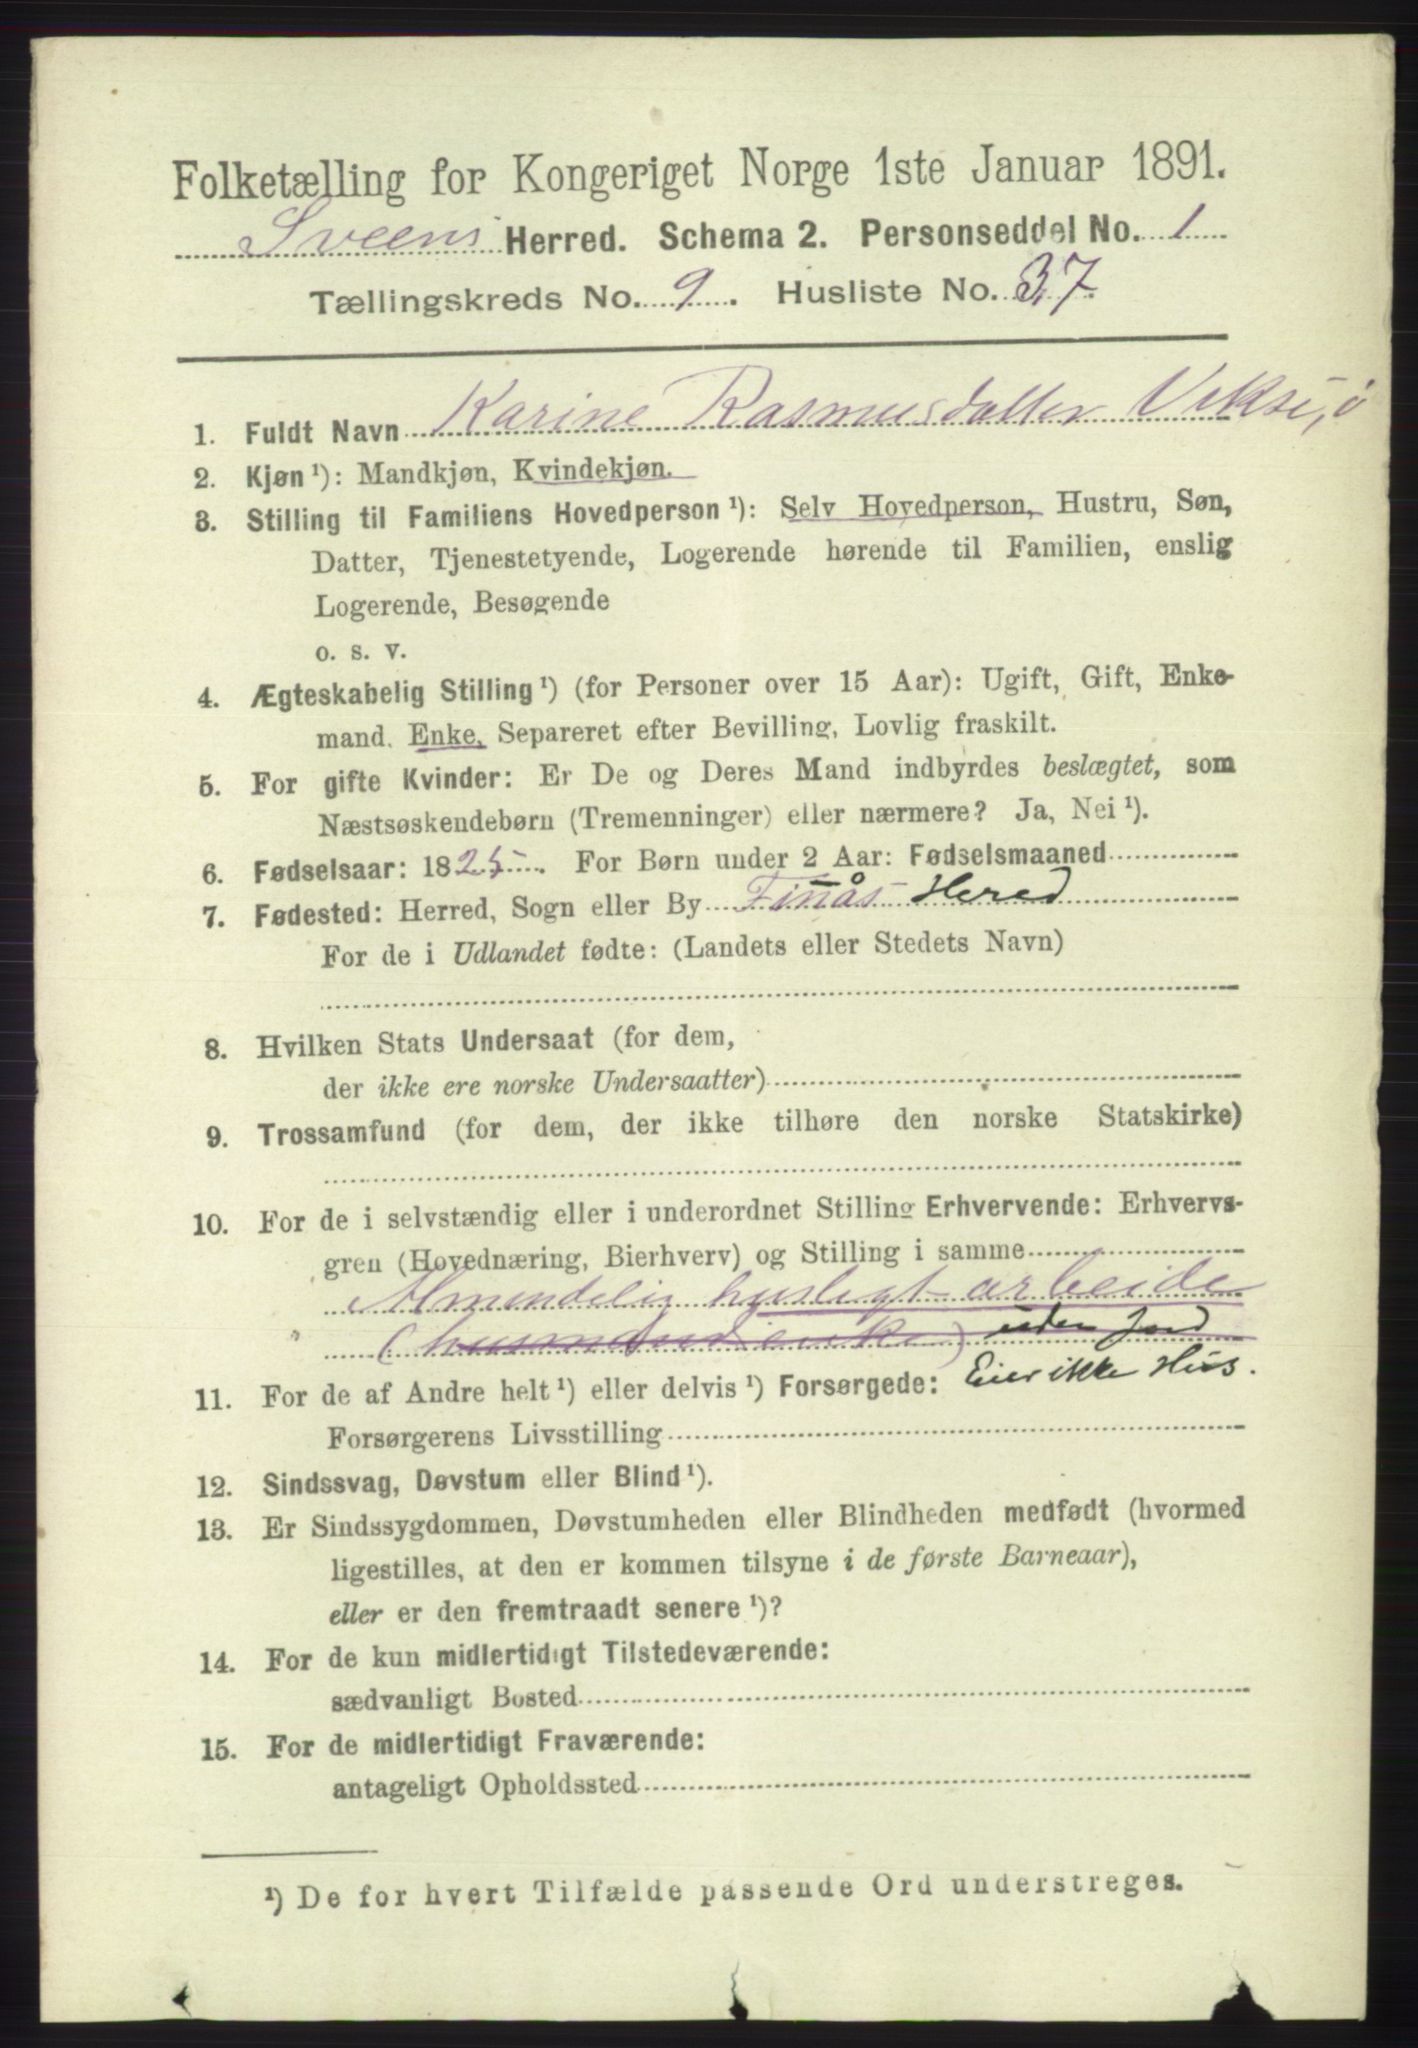 Folketælling for Kongeriget Norge 1ste Januar 1891.
Sveens Herred. Schema 2. Personseddel No. 1
Tællingskreds No. 9. Husliste No. 37.
1. Fuldt Navn Karine Rasmusdatter
2. Kjøn¹): Mandkjøn, Kvindekjøn.
3. Stilling til Familiens Hovedperson¹): Selv Hovedperson, Hustru, Søn,
Datter, Tjenestetyende, Logerende hørende til Familien, enslig
Logerende, Besøgende
o. s. v.
4. Ægteskabelig Stilling¹) (for Personer over 15 Aar): Ugift, Gift, Enke-
mand, Enke, Separeret efter Bevilling, Lovlig fraskilt.
5. For gifte Kvinder: Er De og Deres Mand indbyrdes beslægtet, som
Næstsøskendebørn (Tremenninger) eller nærmere? Ja, Nei¹).
6. Fødselsaar: 1825. For Børn under 2 Aar: Fødselsmaaned
7. Fødested: Herred, Sogn eller By Finås Hered
For de i Udlandet fødte: (Landets eller Stedets Navn)
8. Hvilken Stats Undersaat (for dem,
der ikke ere norske Undersaatter)
9. Trossamfund (for dem, der ikke tilhøre den norske Statskirke)
10. For de i selvstændig eller i underordnet Stilling Erhvervende: Erhvervs-
gren (Hovednæring, Bierhverv) og Stilling i samme
Almindelig husligt arbeide
(husmands enke) uden Jord
Eier ikke Hus.
11. For de af Andre helt¹) eller delvis¹) Forsørgede:
Forsørgerens Livsstilling
12. Sindssvag, Døvstum eller Blind¹).
13. Er Sindssygdommen, Døvstumheden eller Blindheden medfødt (hvormed
ligestilles, at den er kommen tilsyne i de første Barneaar),
eller er den fremtraadt senere¹)?
14. For de kun midlertidigt Tilstedeværende:
sædvanligt Bosted
15. For de midlertidigt Fraværende:
antageligt Opholdssted
¹) De for hvert Tilfælde passende Ord understreges.